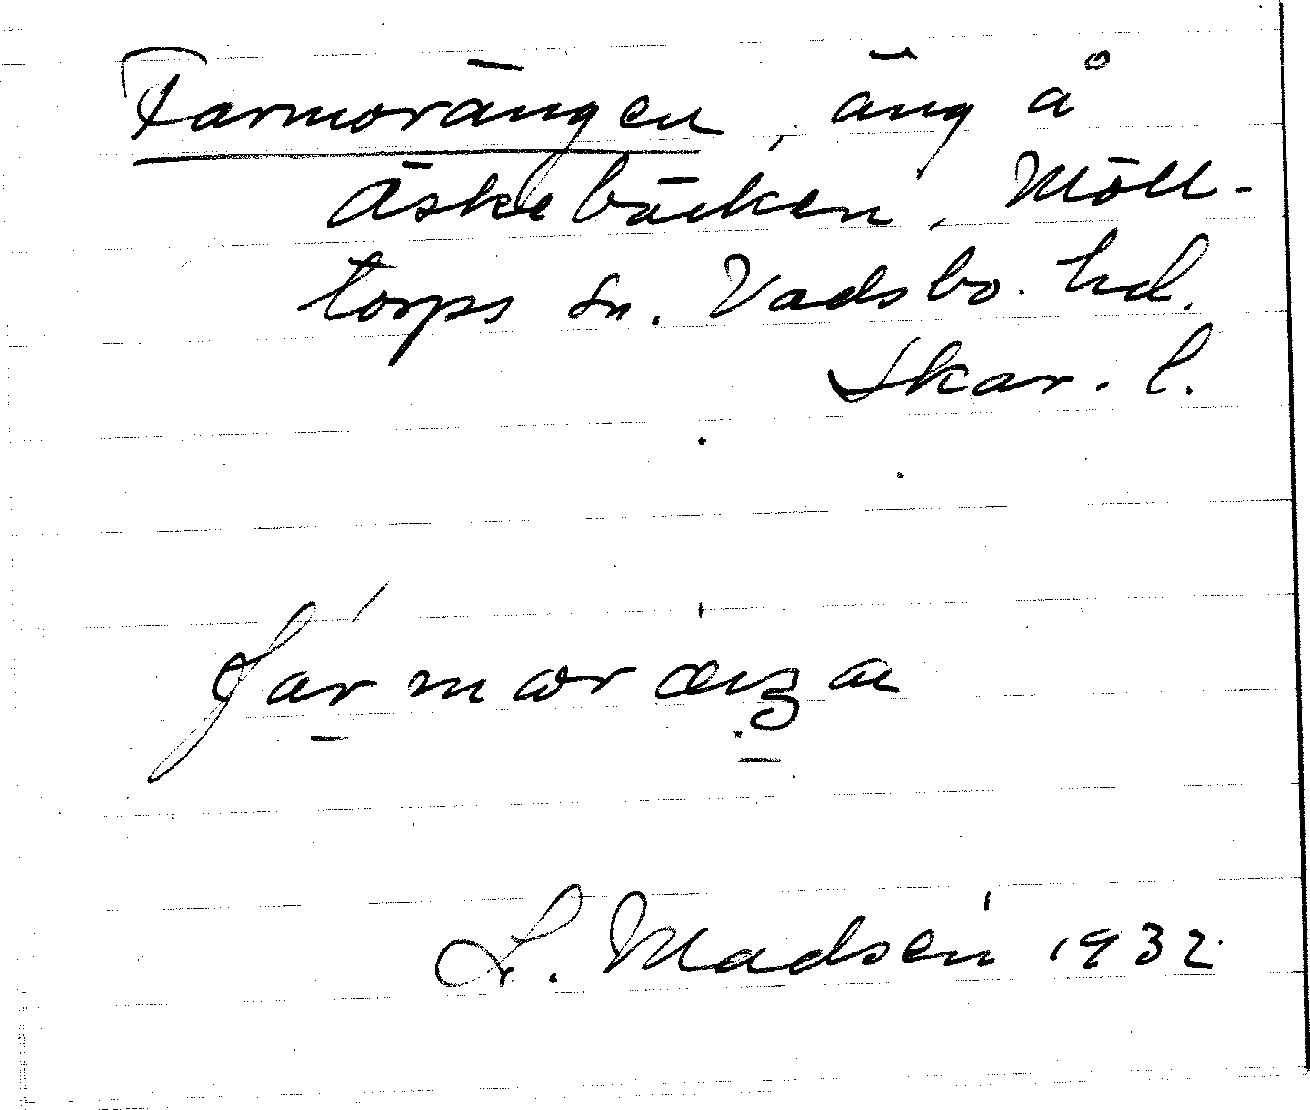 Farmorängen, äng å
Äskebäcken, Möll-
torps sn. Vadsbo hd.
Skar. l.
L. Madsén 1932